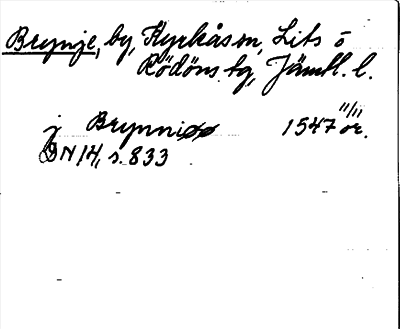 Brynje, by, Kyrkås sn, Lits o
Rödöns tg, Jämtl. l.
j Brynniøø 1547 11/11 or.
DN 14, s. 833